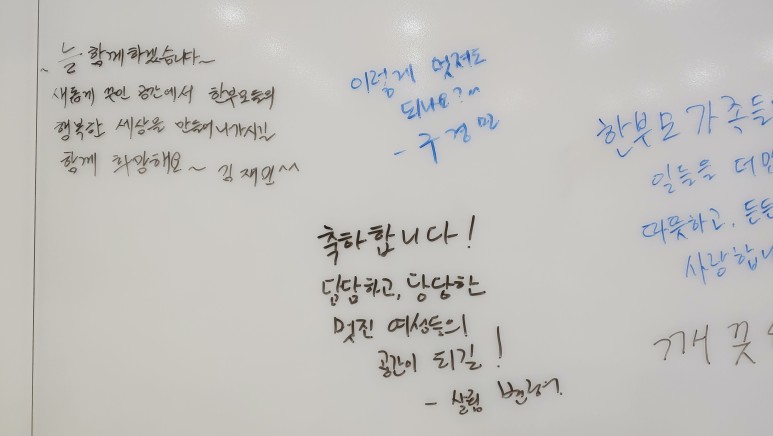 ~ 늘 함께하겠습니다~
새롭게 꾸민 공간에서 한부모들의
행복한 세상을 만들어나가시길
함께 희망해요~ 김재원^^
이렇게 멋져도
되나요?
- 구경민
축하합니다!
담담하고, 당당한
멋진 여성들의
공간이 되길!
- 살림
한부모가족들
일들을 더
따뜻하고, 든든
사랑합니
깨꿋